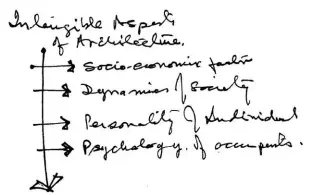 Intangible Aspects
of Architecture.
Socio-economic factors
Dynamics of Society
Personality of Individual
Psychology of occupants.